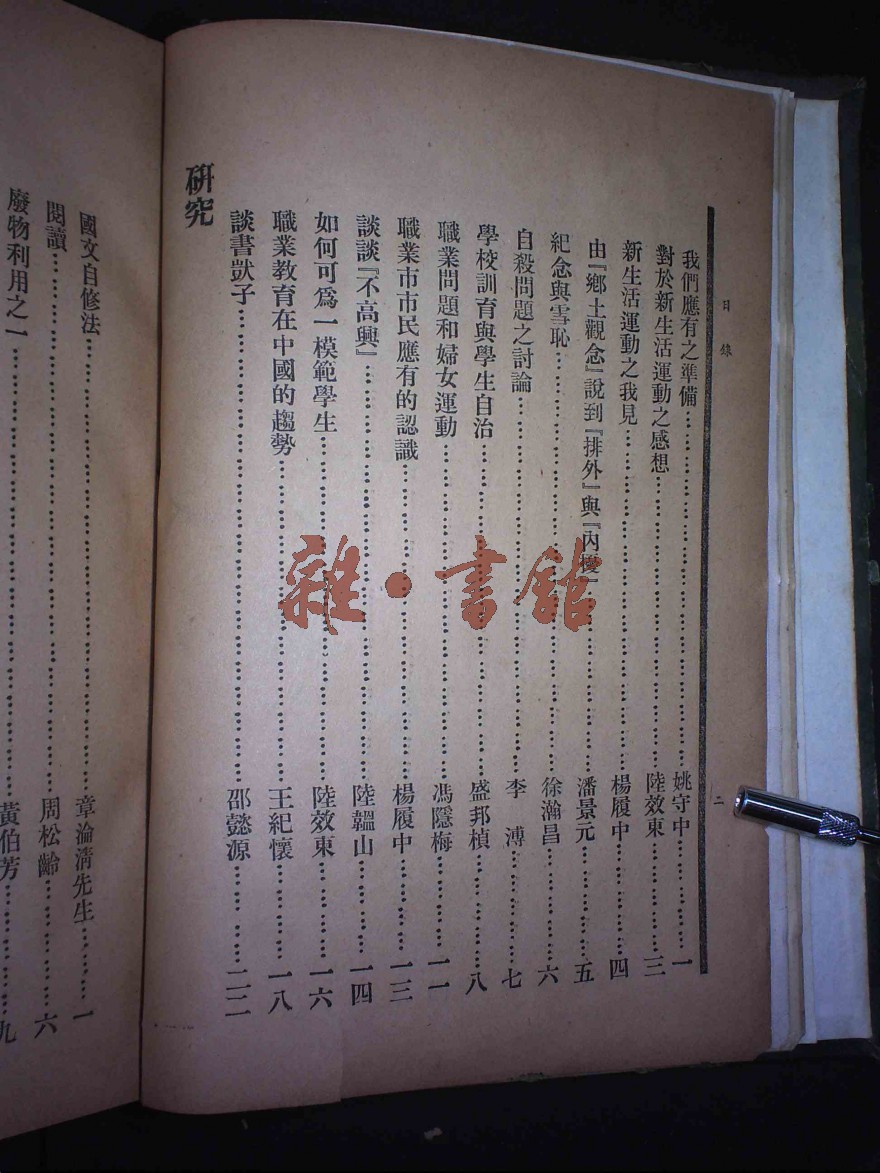 目錄
二
我們應有之準備……姚守中……一
對於新生活運動之感想……陸效東……三
新生活運動之我見……楊履中……四
由『鄉土觀念』說到『排外』與『內優』……潘景元……五
紀念與雪恥……徐瀚昌……六
自殺問題之討論……李溥……七
學校訓育與學生自治……盛邦楨……八
職業問題和婦女運動……馮隱梅……一一
職業市市民應有的認識……楊履中……一三
談談『不高興』……陸韞山……一四
如何可爲一模範學生……陸效東……一六
職業教育在中國的趨勢……王紀懷……一八
談書獃子……邵懿源……二二
研究
國文自修法……章淪清先生……一
閱讀……周松齡……六
廢物利用之一……黃伯芳……九
雜·書館